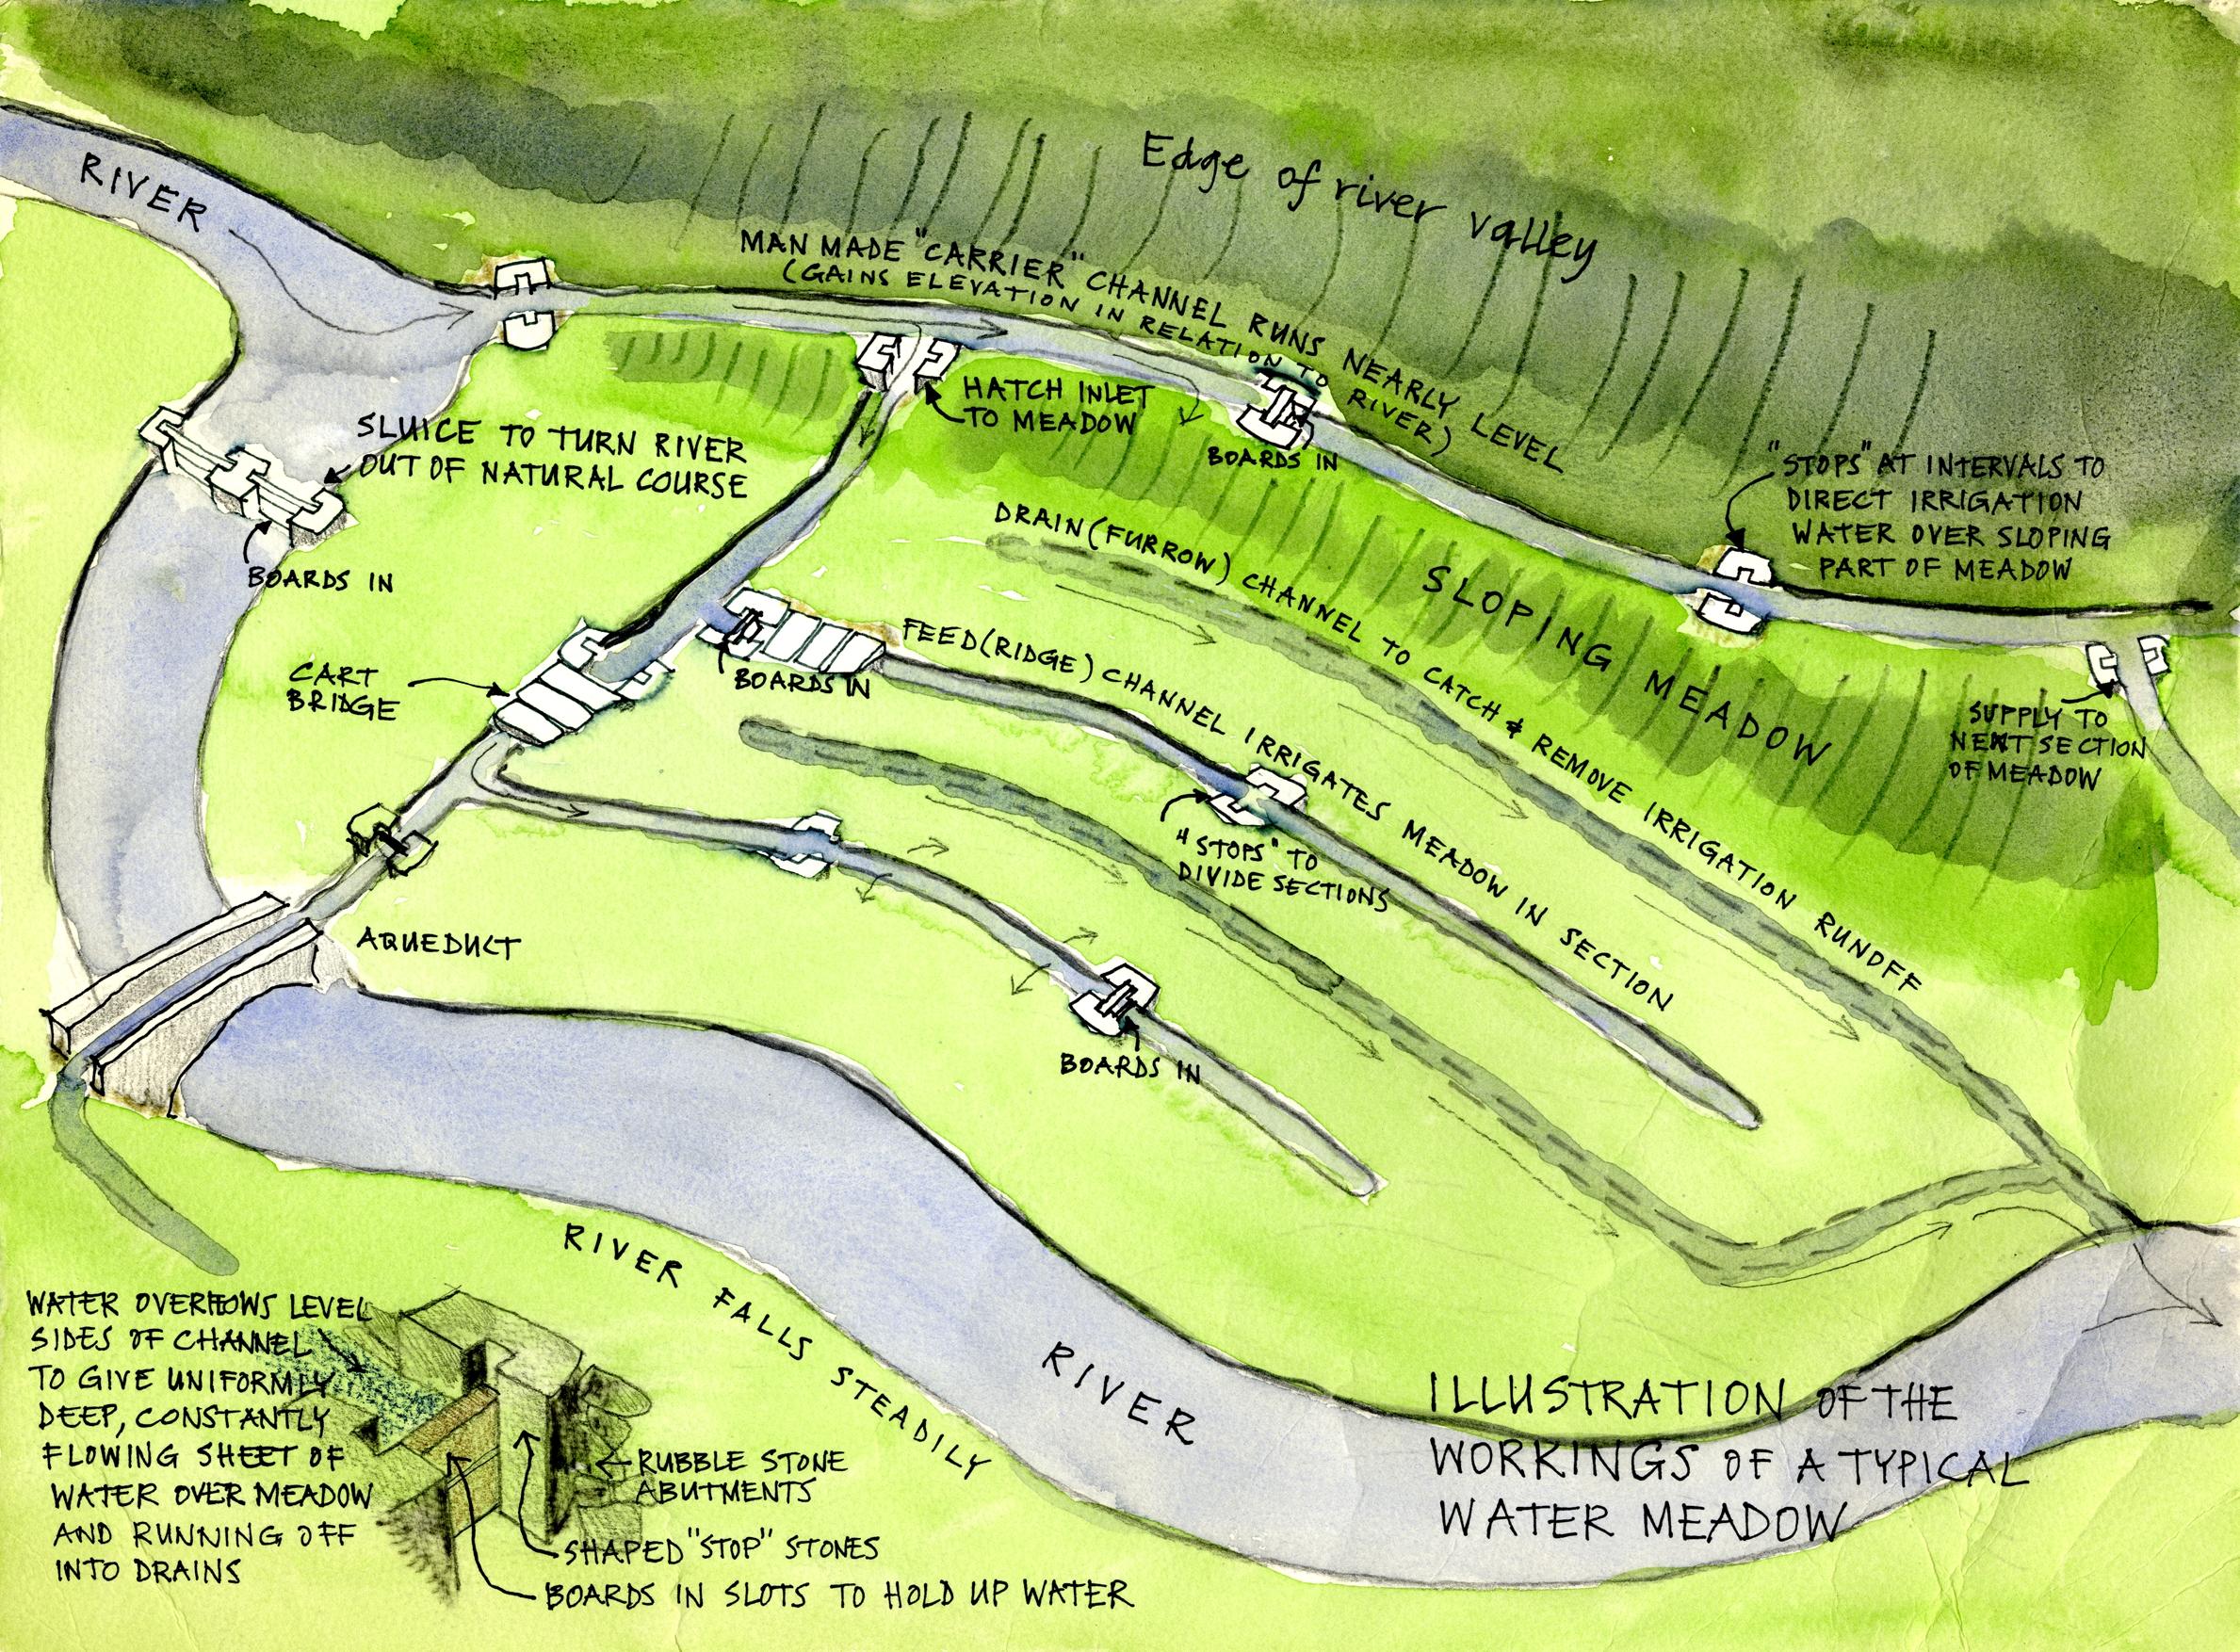 RIVER
Edge of river valley
MAN MADE "CARRIER" CHANNEL RUNS NEARLY LEVEL
(GAINS ELEVATION IN RELATION TO RIVER)
HATCH INLET
TO MEADOW
BOARDS IN
SLUICE TO TURN RIVER
OUT OF NATURAL COURSE
BOARDS IN
"STOPS" AT INTERVALS TO
DIRECT IRRIGATION
WATER OVER SLOPING
PART OF MEADOW
DRAIN (FURROW) CHANNEL TO CATCH & REMOVE IRRIGATION RUNOFF
SLOPING MEADOW
CART
BRIDGE
BOARDS IN
FEED (RIDGE) CHANNEL IRRIGATES MEADOW IN SECTION
SUPPLY TO
NEXT SECTION
OF MEADOW
"STOPS" TO
DIVIDE SECTIONS
AQUEDUCT
BOARDS IN
RIVER FALLS STEADILY
RIVER
WATER OVERFLOWS LEVEL
SIDES OF CHANNEL
TO GIVE UNIFORMLY
DEEP, CONSTANTLY
FLOWING SHEET OF
WATER OVER MEADOW
AND RUNNING OFF
INTO DRAINS
RUBBLE STONE
ABUTMENTS
SHAPED "STOP" STONES
BOARDS IN SLOTS TO HOLD UP WATER
ILLUSTRATION OF THE
WORKINGS OF A TYPICAL
WATER MEADOW